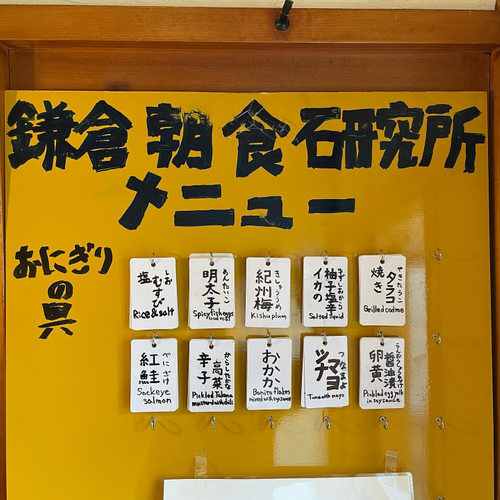 鎌倉朝食研究所
メニュー
おにぎり
の
具
しお
塩むすび
Rice & salt
めんたいこ
明太子
Spicy fish eggs
きしゅううめ
紀州梅
Kishu plum
ゆずしおからい
柚子塩辛
イカの
Salted squid
やきたらこ
焼き
タラコ
Grilled cod roe
べにざけ
紅鮭
Sockeye
salmon
からしたかな
辛子
高菜
Pickled Takana
おかか
Bonito flakes
つなまよ
ツナ
マヨ
Tuna with mayo
醤油漬
卵黄
Pickled egg yolk
in soy sauce